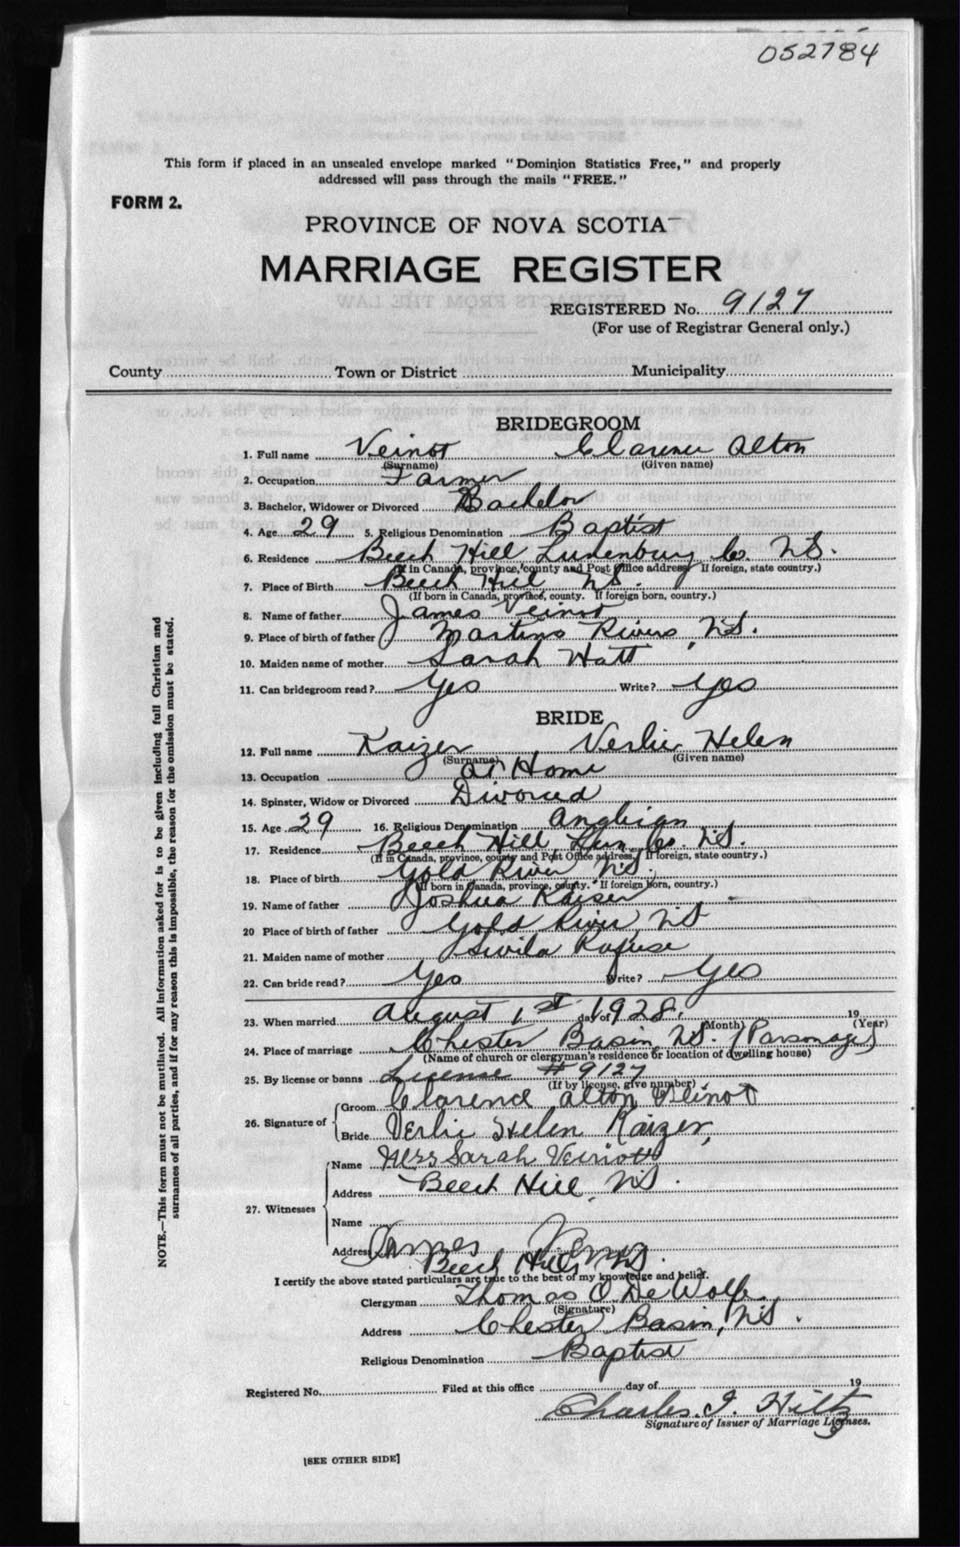 052784
This form if placed in an unsealed envelope marked "Dominion Statistics Free," and properly
addressed will pass through the mails "FREE."
FORM 2.
PROVINCE OF NOVA SCOTIA
MARRIAGE REGISTER
REGISTERED No. 9127
(For use of Registrar General only.)
County Town or District Municipality
BRIDEGROOM
1. Full name Veinot Clarence Alton
(Surname) (Given name)
2. Occupation Farmer
3. Bachelor, Widower or Divorced Bachelor
4. Age 29 5. Religious Denomination Baptist
6. Residence Beech Hill Lunenburg Co. N.S.
(If in Canada, province, county and Post Office address. If foreign, state country.)
7. Place of Birth Beech Hill N.S.
(If born in Canada, province, county. If foreign born, country.)
8. Name of father James Veinot
9. Place of birth of father Martins Rivers, N.S.
10. Maiden name of mother Sarah Hatt
11. Can bridegroom read? Yes Write? Yes
BRIDE
12. Full name Kaizer, Verlie Helen
(Surname) (Given name)
13. Occupation At Home
14. Spinster, Widow or Divorced Divorced
15. Age 29 16. Religious Denomination Anglican
17. Residence Beech Hill, Lun. Co. N.S.
(If in Canada, province, county and Post Office address, If foreign, state country.)
18. Place of birth Gold River N.S.
(If born in Canada, province, county. If foreign born, country.)
19. Name of father Joshua Kaiser
20 Place of birth of father Gold River, N.S
21. Maiden name of mother Rafuse
22. Can bride read? Yes Write? Yes
23. When married August 1st day of 1928. 19
(Month) (Year)
24. Place of marriage Chester Basin, N.S. (Parsonage)
(Name of church or clergyman's residence or location of dwelling house)
25. By license or banns License # 9127
(If by license, give number)
26. Signature of Groom Clarence Alton Veinot
Bride Verlie Helen Kaizer,
27. Witnesses Name Mrs Sarah Veinott
Address Beech Hill, N.S.
Name
Address James
Beech Hill, N.S.
I certify the above stated particulars are true to the best of my knowledge and belief.
Clergyman Thomas O. DeWolfe
(Signature)
Address Chester Basin, N.S.
Religious Denomination Baptist
Registered No. Filed at this office day of 19
Charles I. Hiltz
Signature of Issuer of Marriage Licenses.
[SEE OTHER SIDE]
NOTE.—This form must not be mutilated. All information asked for is to be given including full Christian and
surnames of all parties, and if for any reason this is impossible, the reason for the omission must be stated.